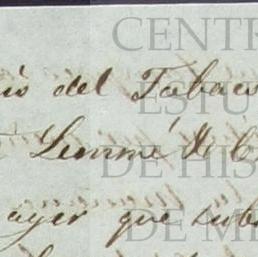 CENTR
is del Tabac
ESTU
Lemmé &
DE HIS
ayer que sub
DE M